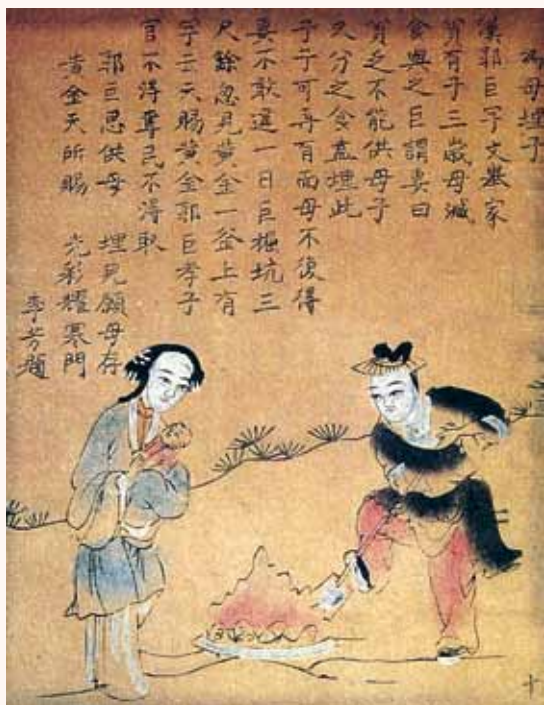 為母埋子
漢郭巨字文舉家
貧有子三歲母減
食與之巨謂妻曰
貧乏不能供母子
又分之食盍埋此
子子可再有而母不復得
妻不敢違一日巨掘坑三
尺餘忽見黃金一釜上有
字云天賜黃金郭巨孝子
官不得奪民不得取
郭巨思供母 埋兒願母存
黃金天所賜 光彩耀寒門
芳題
十